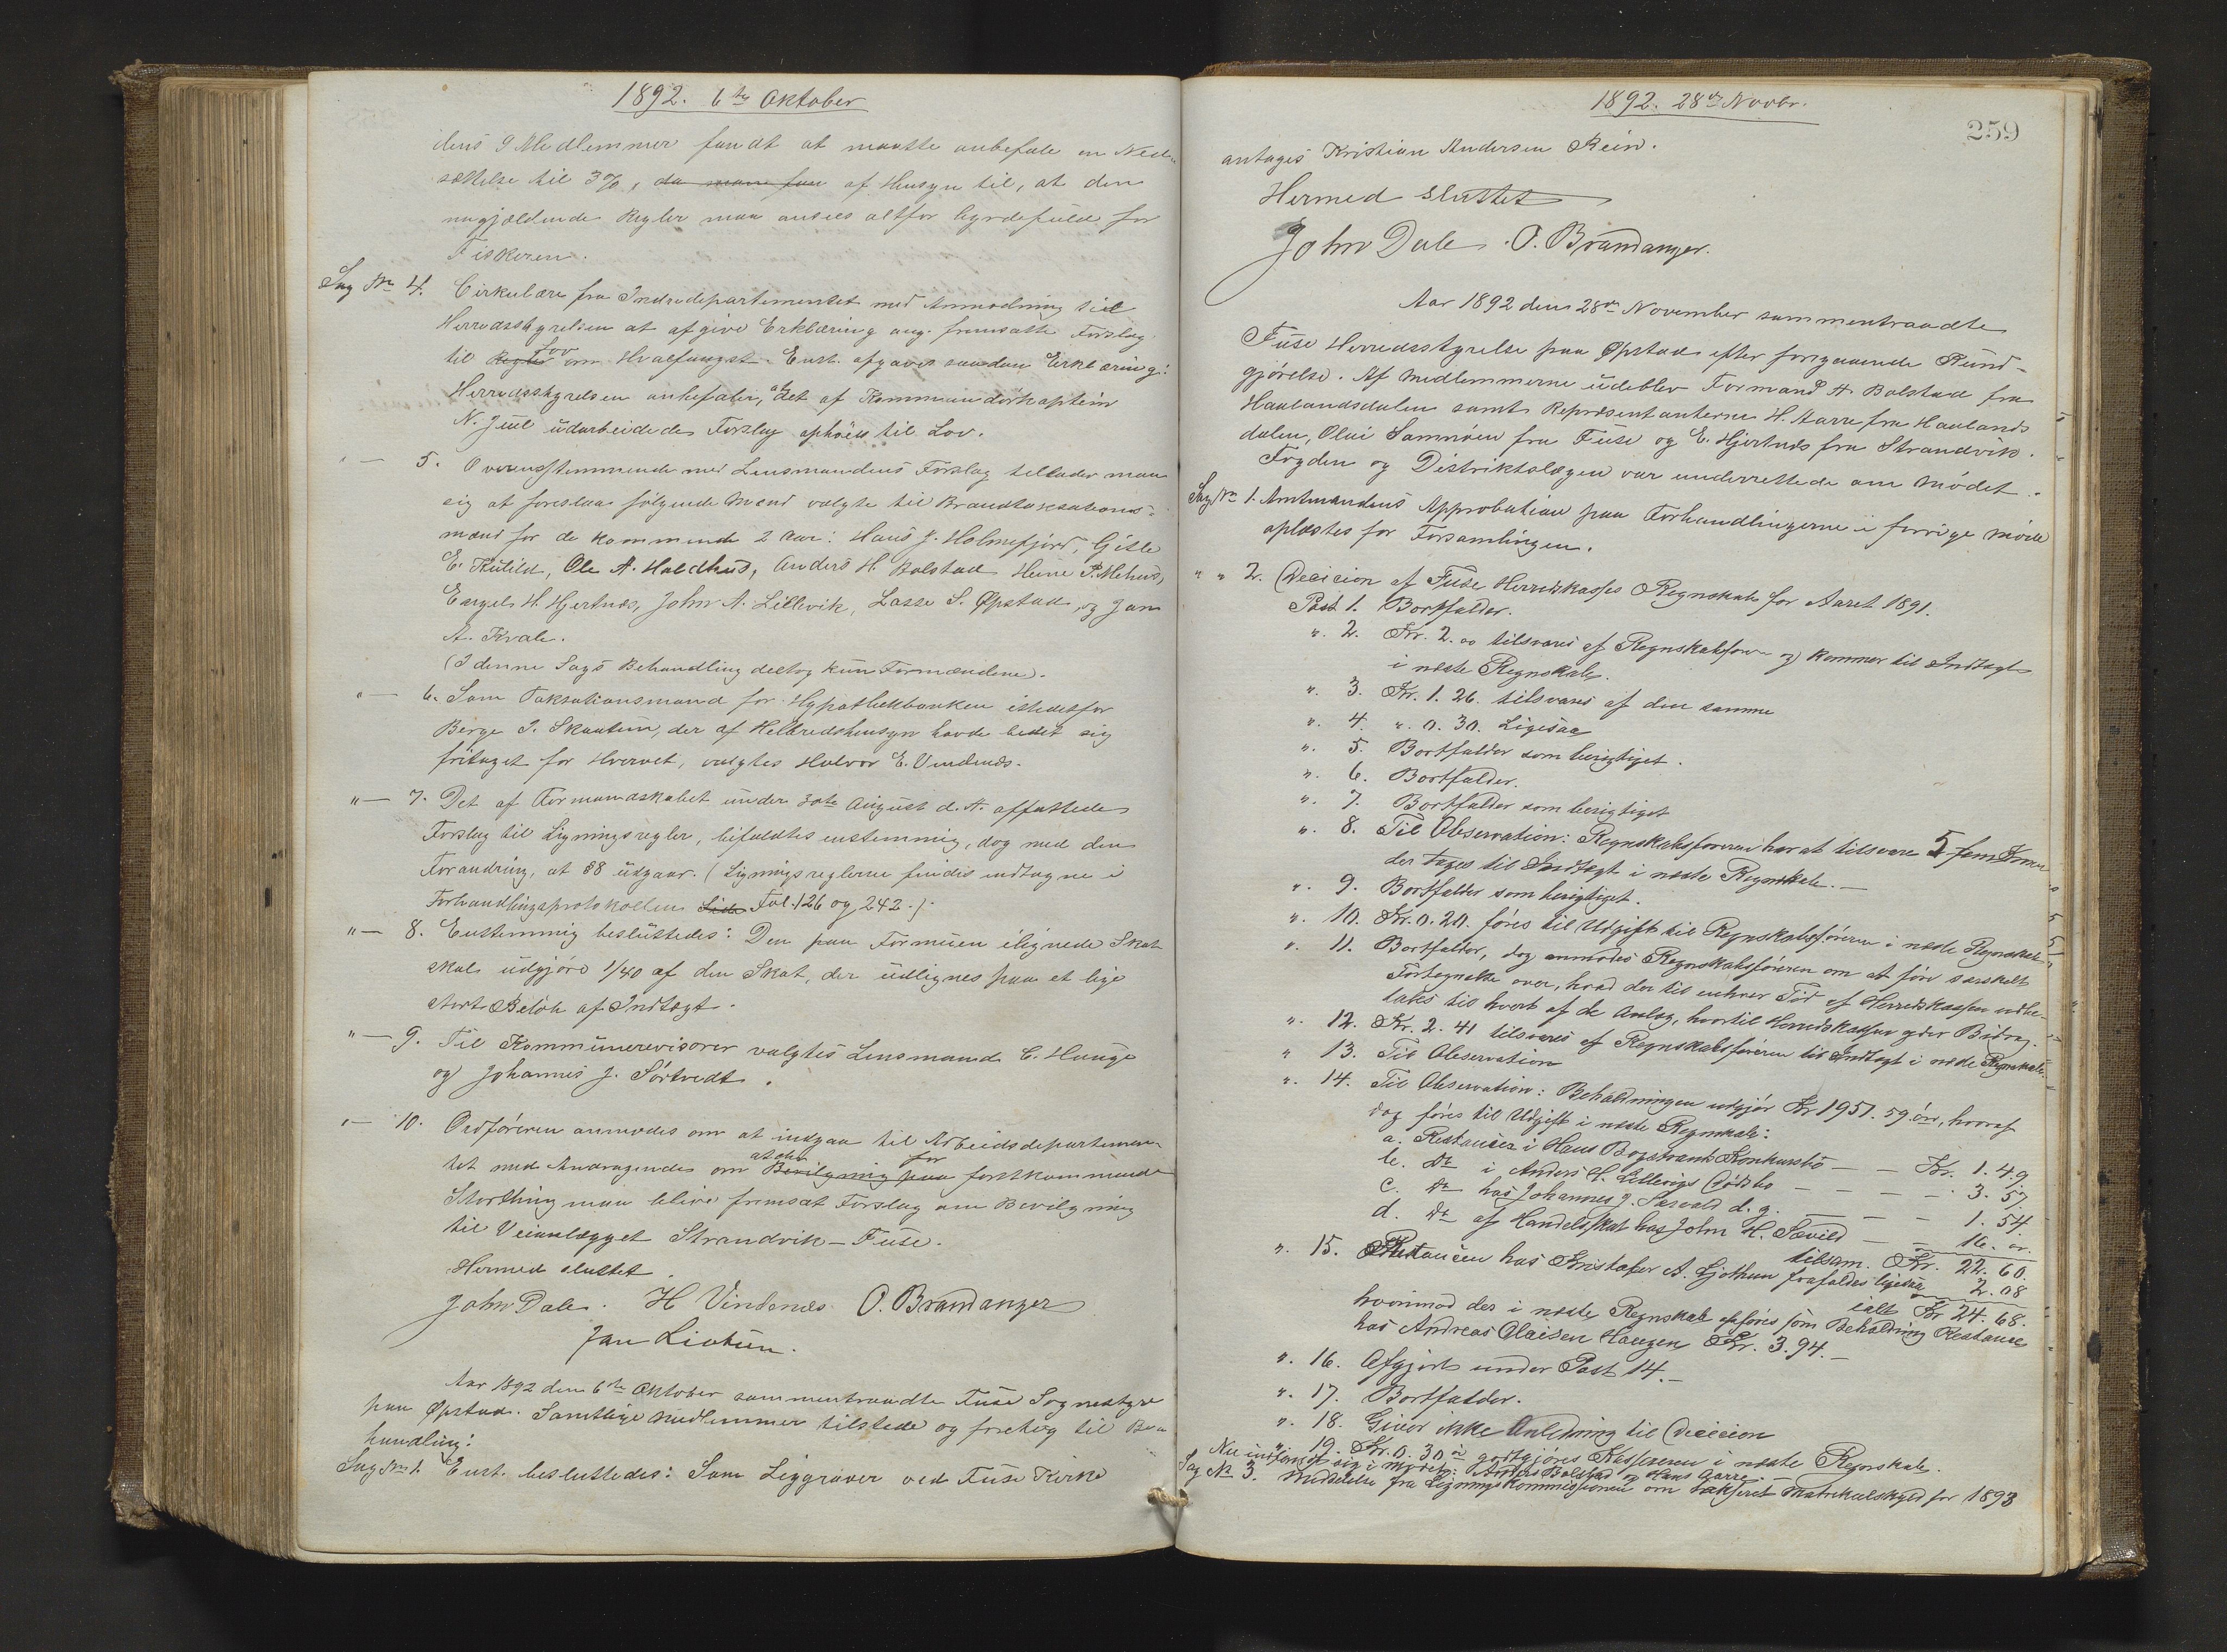 1892. 6te Oktober
dens 9 Medlemmer fandt at maatte anbefale en Ned-
sættelse til 3%, da man fan af Hensyn til, at den
nugjældende Regler maa ansees altfor byrdefuld for
Fiskeren.
Sag No 4. Cirkulære fra Indredepartementet med Anmodning til
Herredsstyrelsen at afgive Erklæring ang. fremsatte Forslag
til Regler Lov om Hvalfangst. Enst. afgaves saadan Erklæring:
Herredsstyrelsen anbefaler, at det af Kommandörkaptein
N. Juul udarbeidede Forslag ophöies til Lov.
" — 5. Overensstemmende med Lensmandens Forslag tillader man
sig at foreslaa fölgende Mænd valgte til Brandtaxsations-
mænd for de kommende 2 Aar: Hans J. Holmefjord, Gitle
E. Kulild, Ole A. Haldhus, Anders H. Bolstad Heine P. Mehus,
Engel H. Hjertnes, John A. Lillevik, Lasse S. Øpstad og Jan
A. Kvale.
(I denne Sags Behandling deltog kun Formændene).
" — 6. Som Taksationsmand for Hypothekbanken istedetfor
Berge I. Skaatun, der af Helbredshensyn havde bedet sig
fritaget for Hvervet, valgtes Halvor E. Vindenes.
" — 7. Det af Formandskabet under 30te August d. A. affattede
Forslag til Ligningsregler, bifaldtes enstemmig, dog med den
Forandring, at §8 udgaar. (Ligningsreglerne findes indtagne i
Forhandlingsprotokollen Side Fol. 126 og 242.)
" — 8. Enstemmig besluttedes: Den paa Formuen ilignede Skat
skal udgjöre 1/40 af den Skat, der udlignes paa et lige
stort Belöb af Indtægt.
" — 9. Til Kommunerevisorer valgtes Lensmand C. Hauge
og Johannes J. Sörtvedt.
" — 10. Ordföreren anmodes om at indgaa til Arbeidsdepartemen-
tet med Andragende om at der Bevilgning paa for förstkommende
Storthing maa blive fremsat Forslag om Bevilgning
til Veianlægget Strandvik–Fuse.
Hermed sluttet.
John Dale. H Vindenes O. Brandanger
Jan Liatun.
Aar 1892 den 6te Oktober sammentraadte Fuse Sognestyre
paa Øpstad. Samtlige Medlemmer tilstede og foretog til Be-
handling:
Sag No 1. Enst. besluttedes: Som Liggraver ved Fuse Kirke
1892. 28de Novbr.
259
antages Kristian Andersen Rein.
Hermed sluttet
John Dale. O. Brandanger.
Aar 1892 den 28de November sammentraadte
Fuse Herredsstyrelse paa Øpstad efter foregaaende Kund-
gjörelse. Af Medlemmerne udeblev Formand A. Bolstad fra
Haalandsdalen samt Repræsentanterne H. Aarre fra Haalands
dalen, Olai Samnöen fra Fuse og E. Hjertnes fra Strandvik.
Fogden og Distriktslægen var underrettede om Mödet.
Sag No 1. Amtmandens Approbation paa Forhandlingerne i forrige Möde
oplæstes for Forsamlingen.
" " 2. Decicion af Fuse Herredskasses Regnskab for Aaret 1891.
Post 1. Bortfalder.
". 2. Kr. 2.00 tilsvares af Regnskabsf og kommer til Indtægt
i næste Regnskab.
". 3. Kr. 1.26. tilsvares af den samme
". 4. ". 0.30. Ligesaa
". 5. Bortfalder som berigtiget.
". 6. Bortfalder.
". 7. Bortfalder som berigtiget
". 8. Til Observation: Regnskabsföreren har at tilsvare 5 fem Kroner
der tages til Indtægt i næste Regnskab. —
". 9. Bortfalder som berigtiget.
". 10. Kr. 0.20. föres til Udgift til Regnskabsföreren i næste Regnskab
". 11. Bortfalder, dog anmodes Regnskabsföreren om at före særskilt
Fortegnelse over, hvad der til enhver Tid af Herredskassen udbe-
tales til hvert af de Anlæg, hvortil Herredskassen yder Bidrag.
". 12. Kr. 2.41 tilsvares af Regnskabsföreren til Indtægt i næste Regnskab.
" 13. Til Observation
". 14. Til Observation: Behaldningen udgjör Kr 1951.59 öre, hvoraf
dog föres til Udgift i næste Regnskab:
a. Restancer i Hans Bogstrands Konkursbo — — Kr. 1.49
b. Do i Anders H. Lillevigs Dödsbo — — — — 3.57
c. Do hos Johannes J. Sævold d. g. — — — 1.54
d. Do af Handelsskat hos John H. Sævild — — 16.00
tilsam. Kr. 22.60.
". 15. Restancen hos Kristofer A. Gjöthun frafaldes ligesaa 2.08
ialt Kr 24.68.
hvorimod der i næste Regnskab opföres som Behaldning Restance
hos Andreas Olaisen Haugen Kr. 3.94. —
". 16. Afgjort under Post 14. —
". 17. Bortfalder.
". 18. Giver ikke Anledning til Decicion
" 19. Kr. 0.30 ö godtgjöres Kassereren i næste Regnskab.
Nu indfandt sig i Mödet: Anders Bolstad og Hans Aarre. —
Sag No 3. Meddelelse fra Ligningskommissionen om takseret Matrikulskyld for 1893